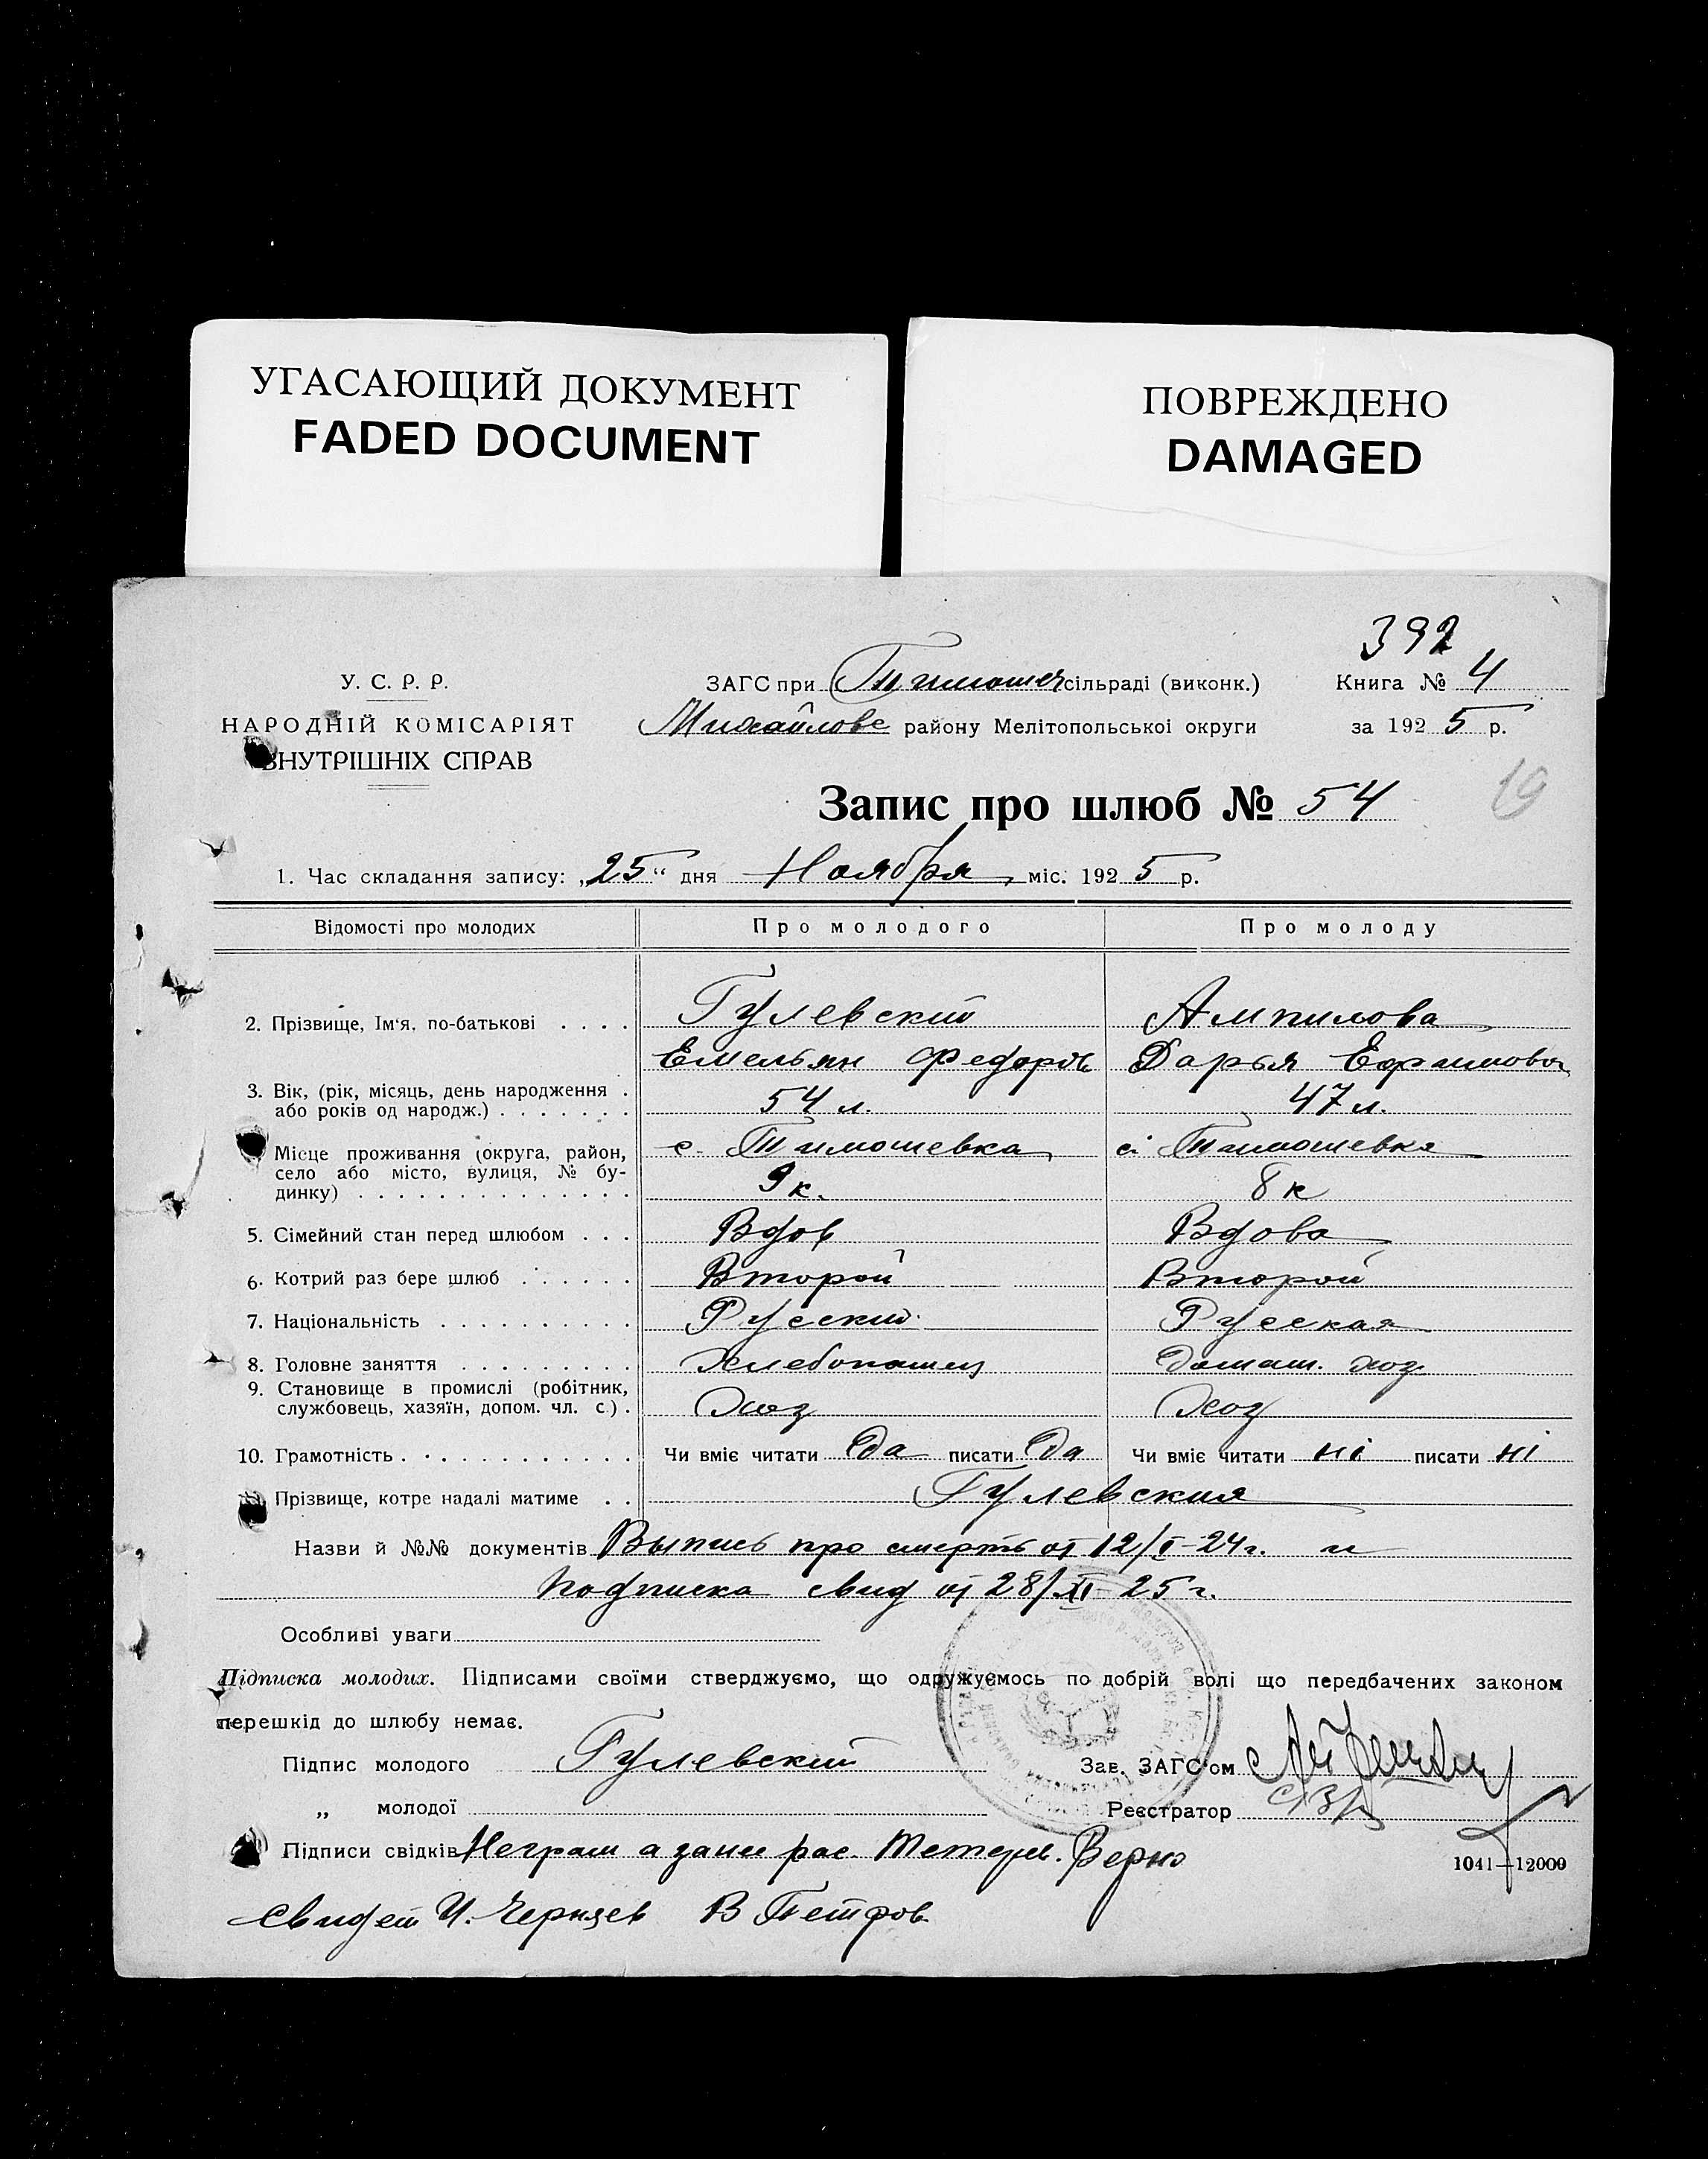 УГАСАЮЩИЙ ДОКУМЕНТ
FADED DOCUMENT
ПОВРЕЖДЕНО
DAMAGED
392
У. С. Р. Р.
НАРОДНІЙ КОМІСАРІЯТ
ВНУТРІШНІХ СПРАВ
ЗАГС при Тимошев сільраді (виконк.)
Михайлове району Мелітопольської округи
Книга № 4
за 1925 р.
19
Запис про шлюб № 54
1. Час складання запису: „25“ дня Ноября міс. 1925 р.
Відомості про молодих Про молодого Про молоду
2. Прізвище, Ім'я, по-батькові . . . . Гулевский Ампилова
Емельян Федоров Дарья Ефимова
3. Вік, (рік, місяць, день народження .
або років од народж.) . . . . . . . 54 л. 47 л.
Місце проживання (округа, район, с. Тимошевка с. Тимошевка
село або місто, вулиця, № бу-
динку) . . . . . . . . . . . . . . 9 к. 8 к
5. Сімейний стан перед шлюбом . . . Вдов Вдова
6. Котрий раз бере шлюб . . . . . . Второй Второй
7. Національність . . . . . . . . . . Русский Русская
8. Головне заняття . . . . . . . . . Хлебопашец Домаш. хоз.
9. Становище в промислі (робітник,
службовець, хазяїн, допом. чл. с.) . Хоз Хоз
10. Грамотність . . . . . . . . . . . Чи вміє читати Да писати Да Чи вміє читати ні писати ні
Прізвище, котре надалі матиме . . Гулевския
Назви й №№ документів Выпись про смерть от 12/I-24 г. и
подписка свид от 28/XI-25 г.
Особливі уваги
Підписка молодих. Підписами своїми стверджуємо, що одружуємось по добрій волі що передбачених законом
перешкід до шлюбу немає.
Підпис молодого Гулевский Зав. ЗАГС'ом
„ молодої Реєстратор
Підписи свідків Неграм а за нее рас. Верно
1041—12000
свидет И. Черняев В Петров